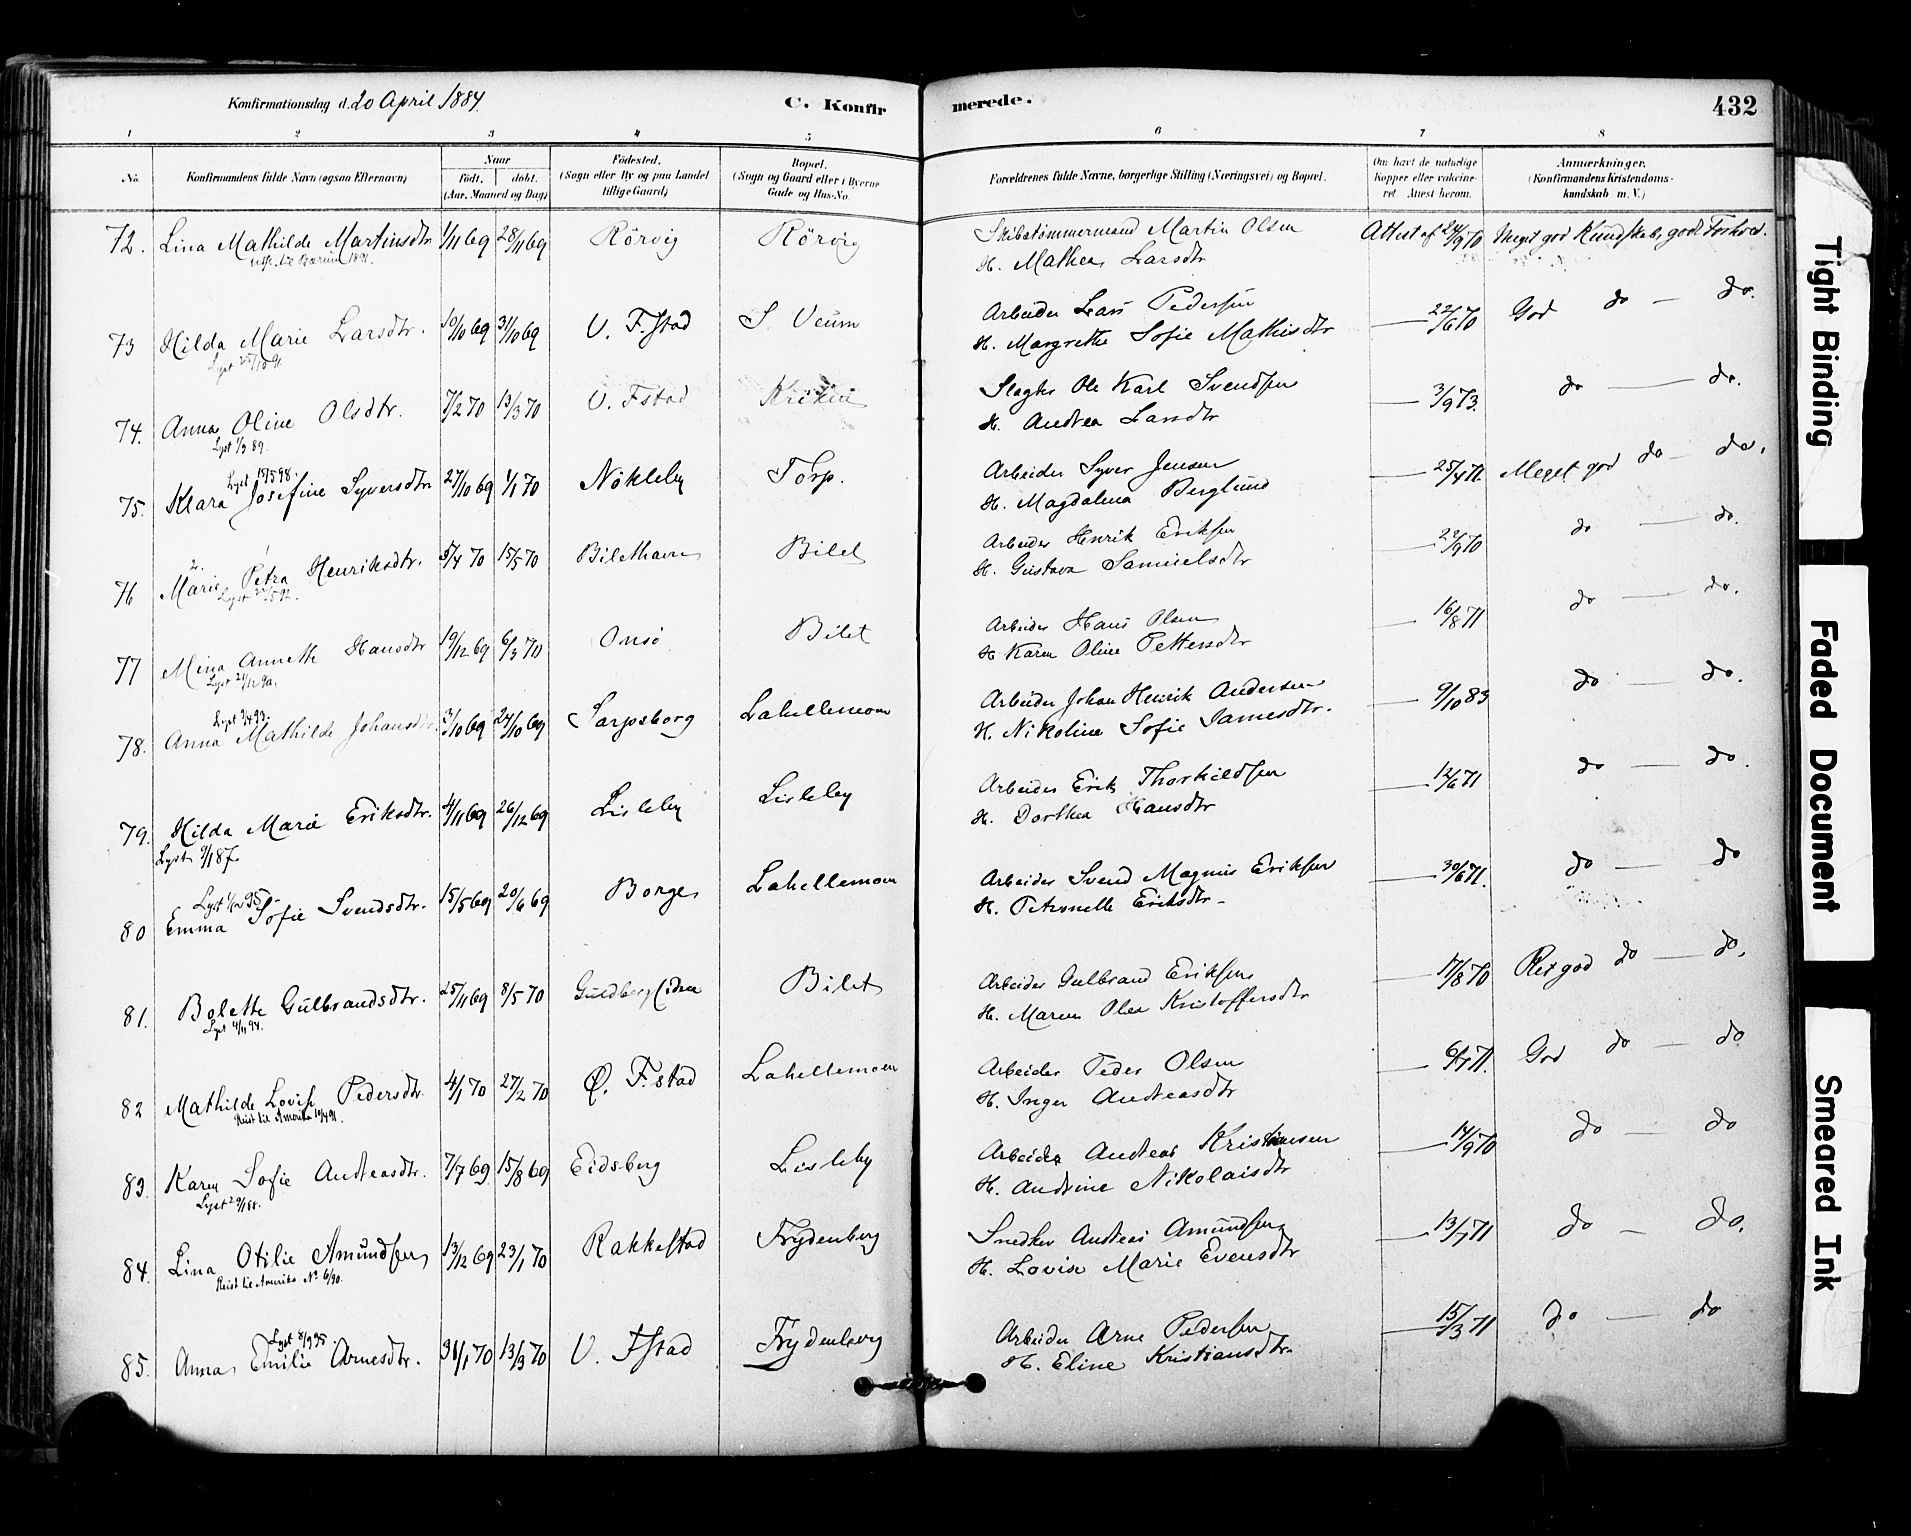 Konfirmationsdag d. 20 April 1884.
C. Konfirmerede.
432
1 2 3 4 5 6 7 8
No. Konfirmandens fulde Navn (ogsaa Efternavn) Naar födt. döbt. (Aar, Maaned og Dag) Födested. (Sogn eller By og paa Landet tillige Gaard) Bopæl. (Sogn og Gaard eller i Byerne Gade og Hus-No. Forældrenes fulde Navne, borgerlige Stilling (Næringsvei) og Bopæl. Om havt de naturlige Kopper eller vaccineret. Attest herom. Anmærkninger. (Konfirmandens Kristendomskundskab m. V.)
72. Lina Mathilde Martinsdtr. 1/11 69 28/11 69 Rörvig Rörvig Skibstømmermand Martin Olsen Attest af 24/9 70 Meget god Kundskab, godt Forhold.
Bærum 1891. H. Mathea Larsdtr
73 Hilda Marie Larsdtr. 10/10 69 31/10 69 V. F.stad S. Veum Arbeider Lars Pedersen — 22/6 70 God do — do.
Lyst H. Margrethe Sofie Mathisdtr
74. Anna Oline Olsdtr. 7/2 70 13/3 70 V. Fstad Slagter Ole Karl Svendsen — 3/9 73. do — do.
Lyst 1/3 89. H. Andrea Larsdtr
Lyst 15/5 98.
75. Klara Josefine Syversdtr 27/10 69 1/1 70 Nökleby Torp. Arbeider Syver Jensen — 25/4 71. Meget god do — do.
H. Magdalena Berglund
76 Marie Petra Henriksdtr. 5/4 70 15/5 70 Bilethavn Bilet Arbeider Henrik Eriksen — 22/9 70 do — do.
Lyst H. Gustava Samuelsdtr
77 Mina Annette Hansdtr 19/12 69 6/3 70 Onsö Bilet Arbeider Hans Olsen — 16/8 71 do — do.
Lyst H. Karen Oline Pettersdtr
Lyst 3/4 93.
78. Anna Mathilde Johansdtr. 3/10 69 24/10 69 Sarpsborg Lahellemoen Arbeider Johan Henrik Andersen — 9/10 83 do — do.
H. Nikoline Sofie Jamesdtr.
79. Hilda Marie Eriksdtr. 4/11 69 26/12 69 Lisleby Lisleby Arbeider Erik Thorkildsen — 12/6 71 do — do.
Lyst 9/1 87. H. Dorthea Hansdtr
Lyst
80 Emma Sofie Svendsdtr. 15/5 69 20/6 69 Borge Lahellemoen Arbeider Svend Magnus Eriksen — 30/6 71. do — do
H. Petronelle Eriksdtr.
81. Bolette Gulbrandsdtr. 25/11 69 8/5 70 Bilet Arbeider Gulbrand Eriksen — 17/8 70 Ret god do — do.
Lyst 4/11 94. H. Maren Olea Kristoffersdtr
82 Mathilde Lovise Pedersdtr 4/1 70 27/2 70 Ø. F.stad Lahellemoen Arbeider Peder Olsen — 6/7 71. God do — do
Reist til Amerika H. Inger Andreasdtr
83. Karen Sofie Andreasdtr. 7/7 69 15/8 69 Eidsberg Lisleby Arbeider Andreas Kristiansen — 14/9 70 do — do
Lyst H. Andrine Nikolaisdtr
84. Lina Otilie Amundsen 13/12 69 23/1 70 Rakkestad Frydenberg Snedker Andreas Amundsen — 13/7 71 do — do.
Reist til Amerika No 6/90. H. Lovise Marie Evensdtr
Lyst 8/9 95.
85. Anna Emilie Arnesdtr. 31/1 70 13/3 70 V. Fstad Frydenberg Arbeider Arne Pedersen — 15/3 71 do — do
H. Eline Kristiansdtr.
Tight Binding
Faded Document
Smeared Ink